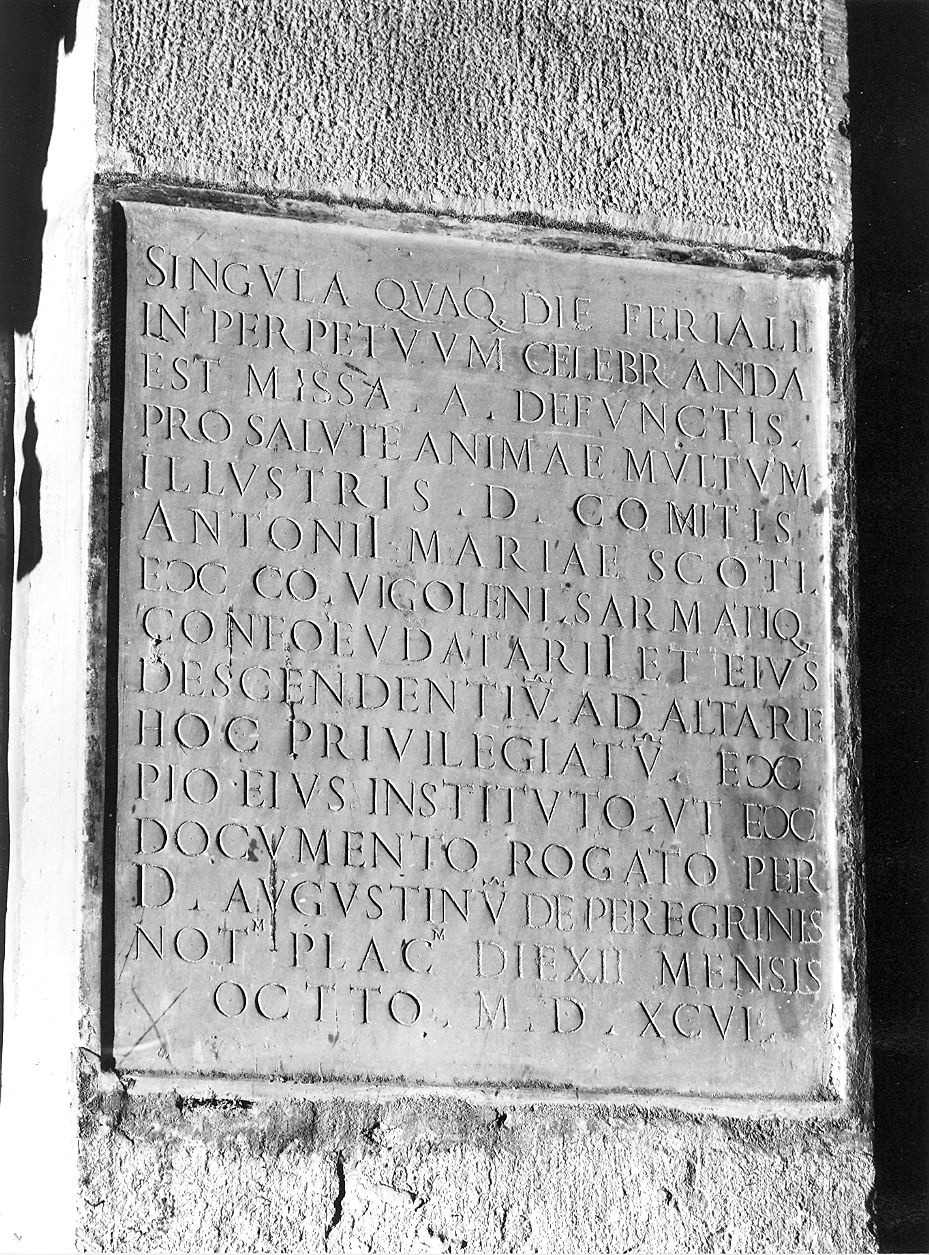 SINGVLA QVAQ DIE FERIALI
IN PERPETVVM CELEBRANDA
EST MISSA . A . DEFVNCTIS.
PRO SALVTE ANIMAE MVLTVM
ILLVSTRIS . D . COMITIS .
ANTONII MARIAE SCOTI.
EƆC CO . VIGOLENI . SARMATIQ
CONFOEVDATARII ET EIVS
DESCENDENTIV̄. AD ALTARE
HOC PRIVILEGIATV̄. EƆC
PIO EIVS INSTITVTO . VT EƆC
DOCVMENTO ROGATO PER
D . AVGVSTINV̄ DE PEREGRINIS
NOT.ᴹ PLACᴹ DIE XII MENSIS
OCTTO . M . D . XCVI .